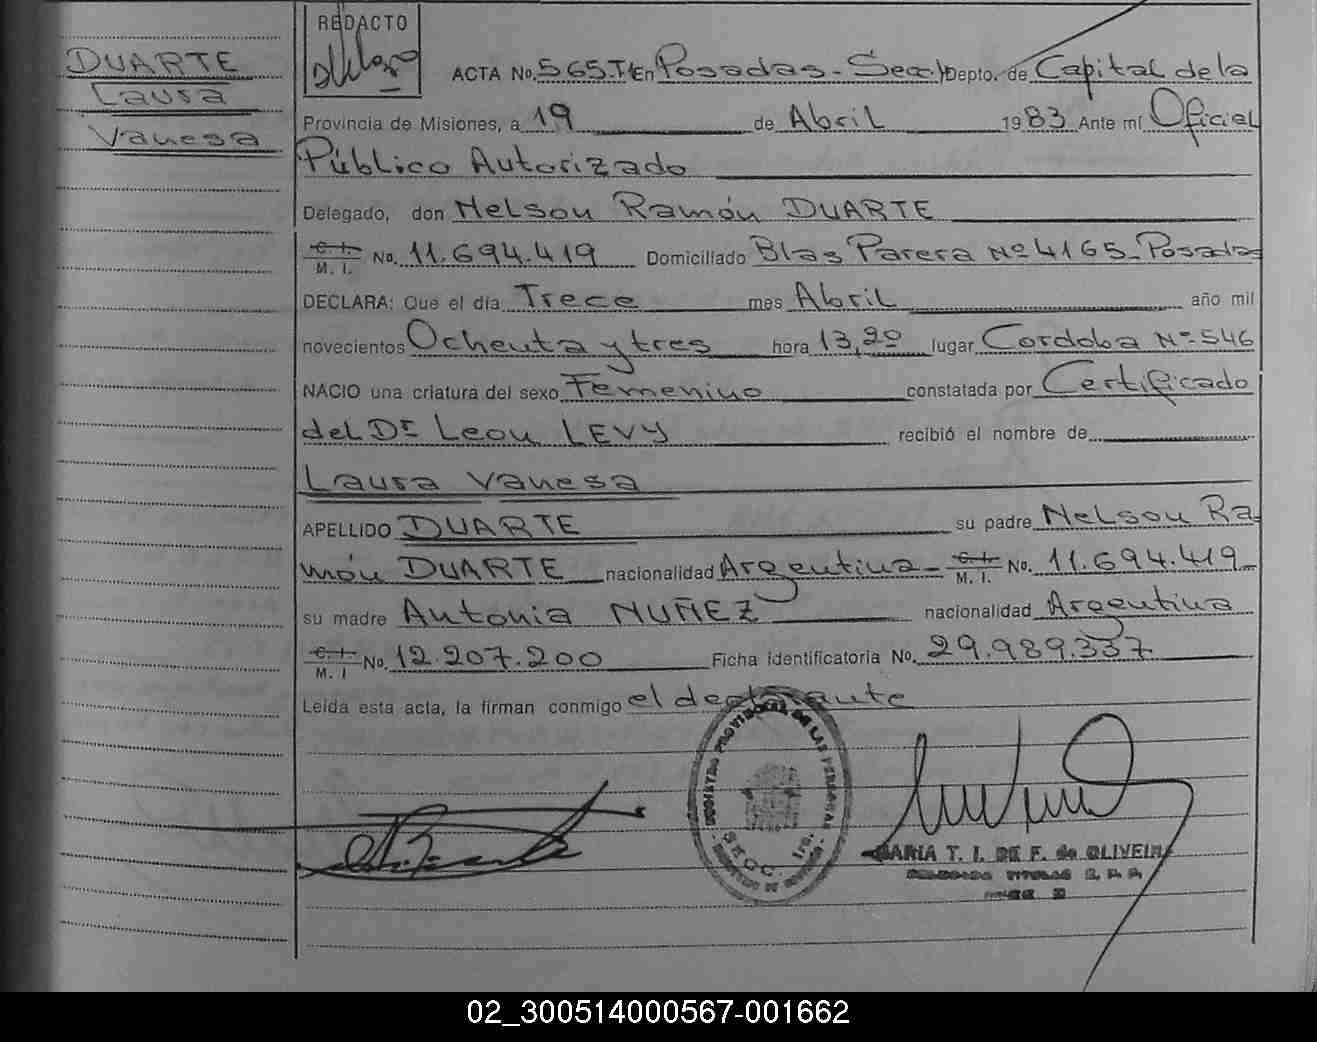 REDACTO
DUARTE
Laura
Vanesa
ACTA No. 565.T I En Posadas - Secc. 1 Depto. de Capital de la
Provincia de Misiones, a 19 de Abril 1983 Ante mí Oficial
Público Autorizado
Delegado, don Nelson Ramón DUARTE
C. I.
M. I. No. 11.694.419 Domiciliado Blas Parera Nº 4165 - Posadas
DECLARA: Que el día Trece mes Abril año mil
novecientos Ochenta y tres hora 13,20 lugar Cordoba Nº 546
NACIO una criatura del sexo Femenino constatada por Certificado
del Dr Leon LEVY recibió el nombre de
Laura Vanesa
APELLIDO DUARTE su padre Nelson Ra-
món DUARTE nacionalidad Argentina - C. I.
M. I. No. 11.694.419
su madre Antonia NUÑEZ nacionalidad Argentina
C. I.
M. I No. 12.207.200 Ficha identificatoria No. 29.989.337
Leída esta acta, la firman conmigo el declarante
REGISTRO PROVINCIAL DE LAS PERSONAS
SECC. 1ra.
MARIA T. I. DE F. de OLIVEIRA
DELEGADO TITULAR R. P. P.
02_300514000567-001662